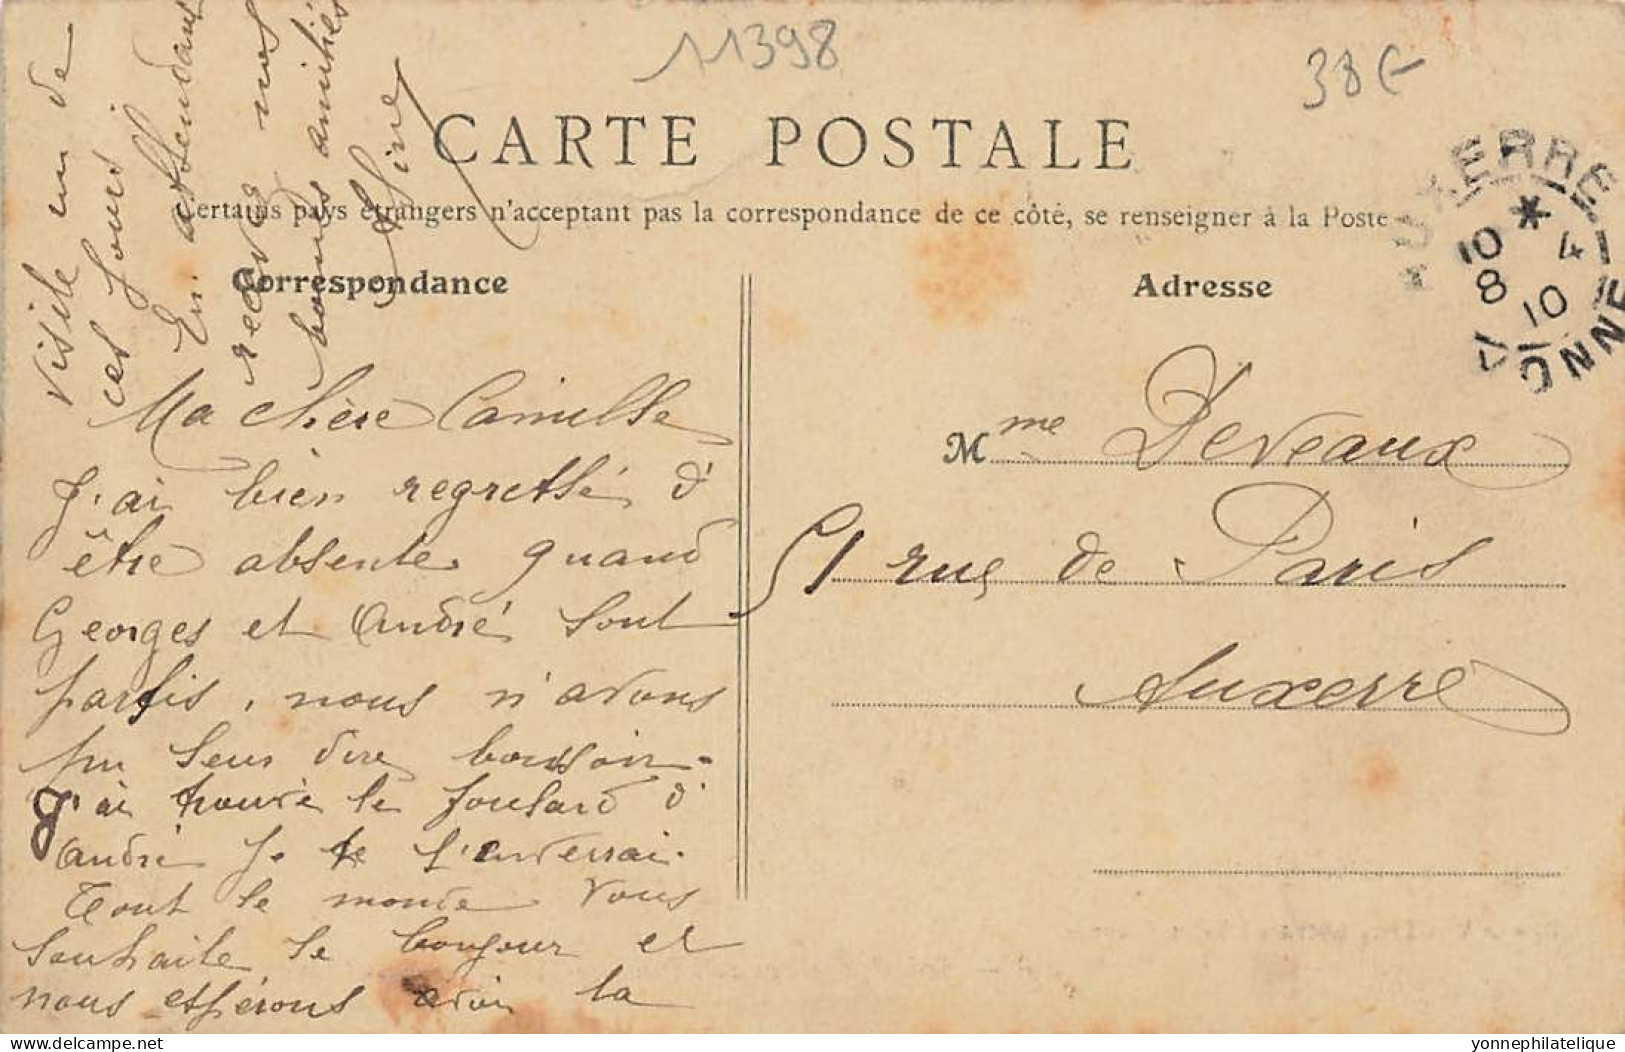 11398
38€
CARTE POSTALE
Certains pays étrangers n'acceptant pas la correspondance de ce côté, se renseigner à la Poste
Correspondance
Adresse
AUXERRE
10 * 4
8 10
YONNE
Ma chère Camille
J'ai bien regretté d'
être absente quand
Georges et André sont
partis, nous n'avons
pu leur dire bonsoir.
J'ai trouvé le foulard d'
André je te l'enverrai.
Tout le monde vous
souhaite le bonjour et
nous espérons avoir la
visite un de
ces jours
En attendant
recevez nos
bonnes amitiés
Mme Deveaux
51 rue de Paris
Auxerre
delcampe.net
yonnephilatelique